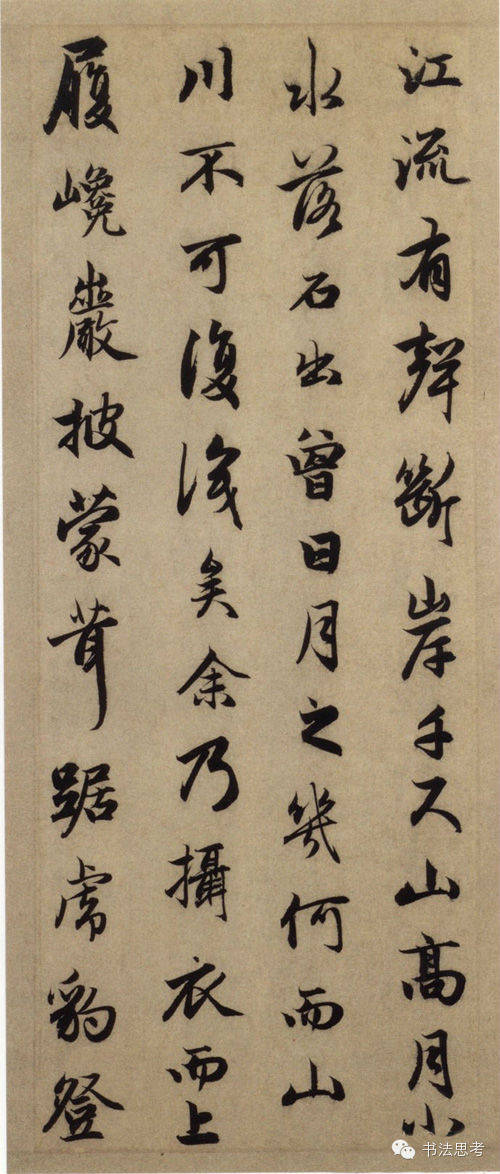 江流有聲斷岸千尺山高月小
水落石出曾日月之幾何而山
川不可復識矣余乃攝衣而上
履巉巖披蒙茸踞虎豹登
书法思考